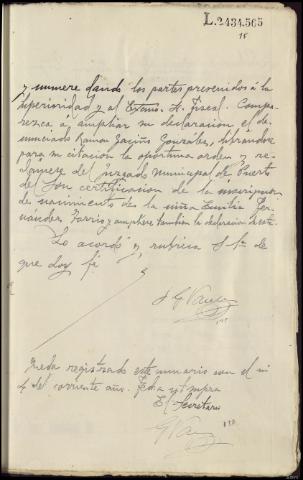 L.2434.565
y numere dando los partes prevenidos á la
Superioridad y al Excmo. Sr. Fiscal. Compa-
rezca á ampliar su declaracion el de-
nunciado Ramon González, librándose
para su citación la oportuna orden y re-
clámese de Juzgado Municipal de Puerto
de Son certificacion de la inscripcion
de nacimiento de la niña Emilia Fer-
nandez y ampliese tambien la
Lo acordó y rubrica S Sª de
que doy fé
Queda registrado este sumario con el nº
4 del corriente año. Fecha ut supra
El Secretario